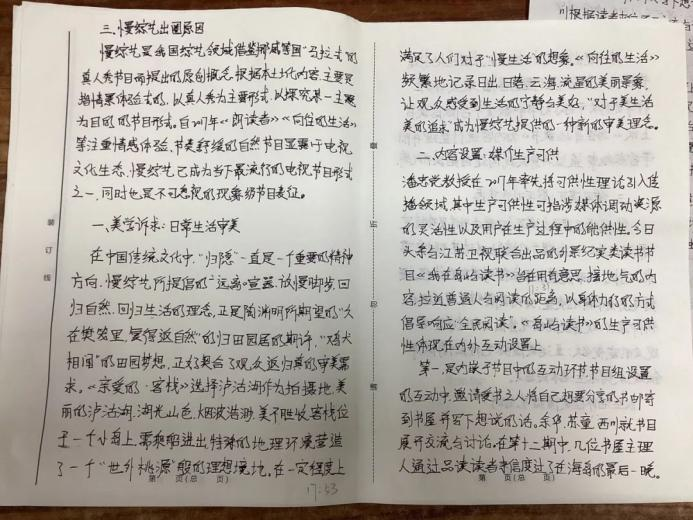 三、慢综艺出圈原因
慢综艺是我国综艺领域借鉴挪威等国"马拉式"的
真人秀节目而提出的原创概念。根据本土化内容，主要是
指情景体验式的，以真人秀为主要形式，以探究某一主题
为目的的节目形式。自2017年《朗读者》《向往的生活》
等注重情感体验、节奏舒缓的自然节目显露于电视
文化生态，慢综艺已成为当下最流行的电视节目形式
之一，同时也是不可忽视的现象级节目表征。
一、美学诉求：日常生活审美
在中国传统文化中，"归隐"一直是一个重要的精神
方向，慢综艺所提倡的"远离喧嚣、放慢脚步、回
归自然、回归生活的理念，正是陶渊明所期望的"久
在樊笼里，复得返自然"的归田园居的期许，"鸡犬
相闻"的田园梦想，正好契合了观众返归真的审美需
求。《亲爱的·客栈》选择泸沽湖作为拍摄地，美
丽的泸沽湖，湖光山色，烟波浩渺，美不胜收，客栈位
于一个小岛上，需乘船进出，特殊的地理环境营造
了一个"世外桃源"般的理想境地。在一定程度上
第 页(总 页)
17:53
装
订
线
满足了人们对于"慢生活"的想象。《向往的生活》
频繁地记录日出、日落、云海、流星的美丽景象，
让观众感受到生活的宁静与美好，"对于美生活
美的追求"成为慢综艺提供的一种新的审美理念。
二、内容设置：媒介生产可供
潘忠党教授在2017年率先将可供性理论引入传
播领域，其中生产可供性可指涉媒体调动资源
的灵活性以及用户在生产过程中的能供性。今日
头条与江苏卫视联合出品的外景纪实类读书节
目《我在岛屿读书》旨在用有意思、接地气的内
容，拉近普通人与阅读的距离，以身体力行的方式
倡导响应"全民阅读"。《岛屿读书》的生产可供
性体现在内外互动设置上
第一，是内嵌于节目中的互动环节。节目组设置
的互动中，邀请爱书之人将自己想要分享的书邮寄
到书屋，并写下想说的话。余华、苏童、西川就书目
展开交流与讨论。在第十二期中，几位书屋主理
人通过品读读者来信度过了在海岛的最后一晚。
第 页(总 页)